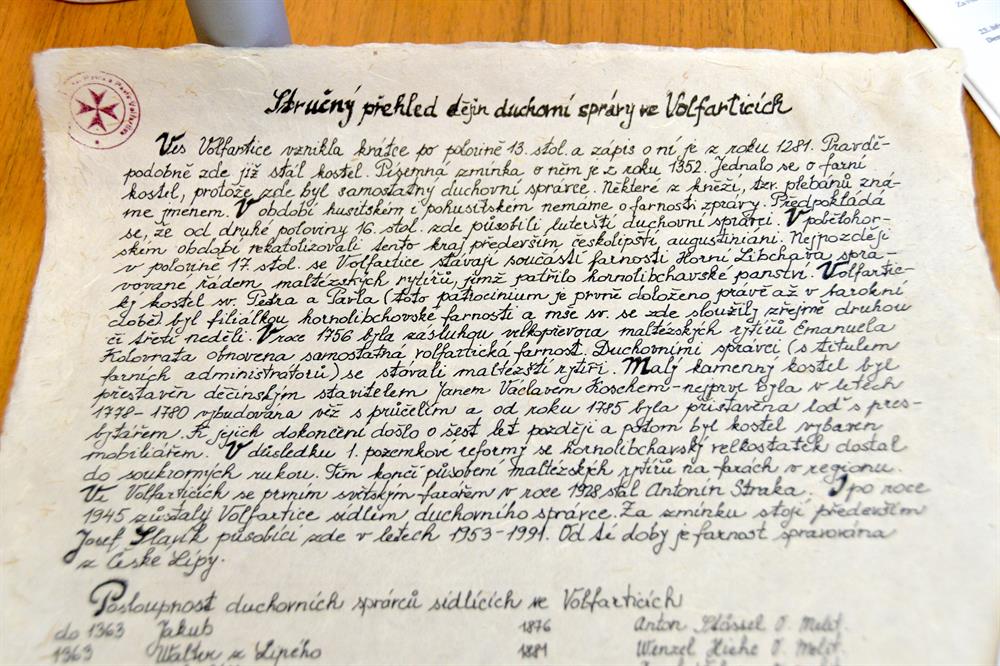 Stručný přehled dějin duchovní správy ve Volfarticích
Ves Volfartice vznikla krátce po polovině 13. stol. a zápis o ní je z roku 1281. Pravdě-
podobně zde již stál kostel. Písemná zmínka o něm je z roku 1352. Jednalo se o farní
kostel, protože zde byl samostatný duchovní správce. Některé z kněží, tzv. plebánů zná-
me jmenem. V období husitském i pohusitském nemáme o farnosti zprávy. Předpokládá
se, že od druhé poloviny 16. stol. zde působili luterští duchovní správci. V pobělohor-
ském období rekatolizovali tento kraj především českolipští augustiniáni. Nejpozději
v polovině 17. stol. se Volfartice stávají součástí farnosti Horní Libchava spra-
vované řádem maltézských rytířů, jimž patřilo hornolibchavské panství. Volfartic-
ký kostel sv. Petra a Pavla (toto patrocinium je prvně doloženo právě až v barokní
době) byl filiálkou hornolibchovské farnosti a mše sv. se zde sloužily zřejmě druhou
či třetí neděli. V roce 1756 byla zásluhou velkopřevora maltézských rytířů Emanuela
Kolovrata obnovena samostatná volfartická farnost. Duchovními správci (s titulem
farních administrátorů) se stávali maltézští rytíři. Malý kamenný kostel byl
přestavěn děčínským stavitelem Janem Václavem Koschem - nejprve byla v letech
1778 - 1780 vybudována věž s průčelím a od roku 1785 byla přistavěna loď s pres-
bytářem. K jejich dokončení došlo o šest let později a potom byl kostel vybaven
mobiliářem. V důsledku 1. pozemkové reformy se hornolibchavský velkostatek dostal
do soukromých rukou. Tím končí působení maltézských rytířů na farách v regionu.
Ve Volfarticích se prvním světským farářem v roce 1928 stal Antonín Straka. I po roce
1945 zůstaly Volfartice sídlem duchovního správce. Za zmínku stojí především
Josef Slavík působící zde v letech 1953 - 1991. Od té doby je farnost spravována
z České Lípy.
Posloupnost duchovních správců sídlících ve Volfarticích
do 1363 Jakub 1876 Anton Stössel O. Melit.
1363 Walter z Lipého 1881 Wenzel Hieke O. Melit.